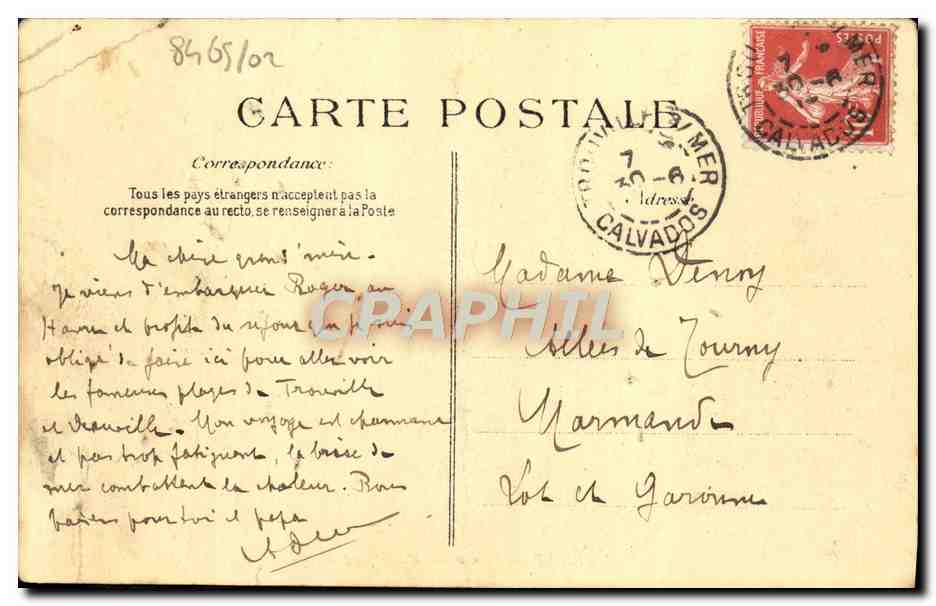 8465/02
CARTE POSTALE
Correspondance:
Tous les pays étrangers n'acceptent pas la
correspondance au recto, se renseigner à la Poste
Ma chère grand'mère.
Je viens d'embarquer Roger au
Havre et profite du séjour que je suis
obligé de faire ici pour aller voir
les fameuses plages de Trouville
et Deauville. Mon voyage est charmant
et pas trop fatiguant, la brise de
mer combattent la chaleur. Bons
baisers pour toi et papa
Adresse
Madame Denoy
Allées de Tourny
Marmande
Lot et Garonne
TROUVILLE S/MER
7
30 -6
CALVADOS
POSTES
RÉPUBLIQUE FRANÇAISE
S/MER
7
30 -6
CALVADOS
CPAPHIL